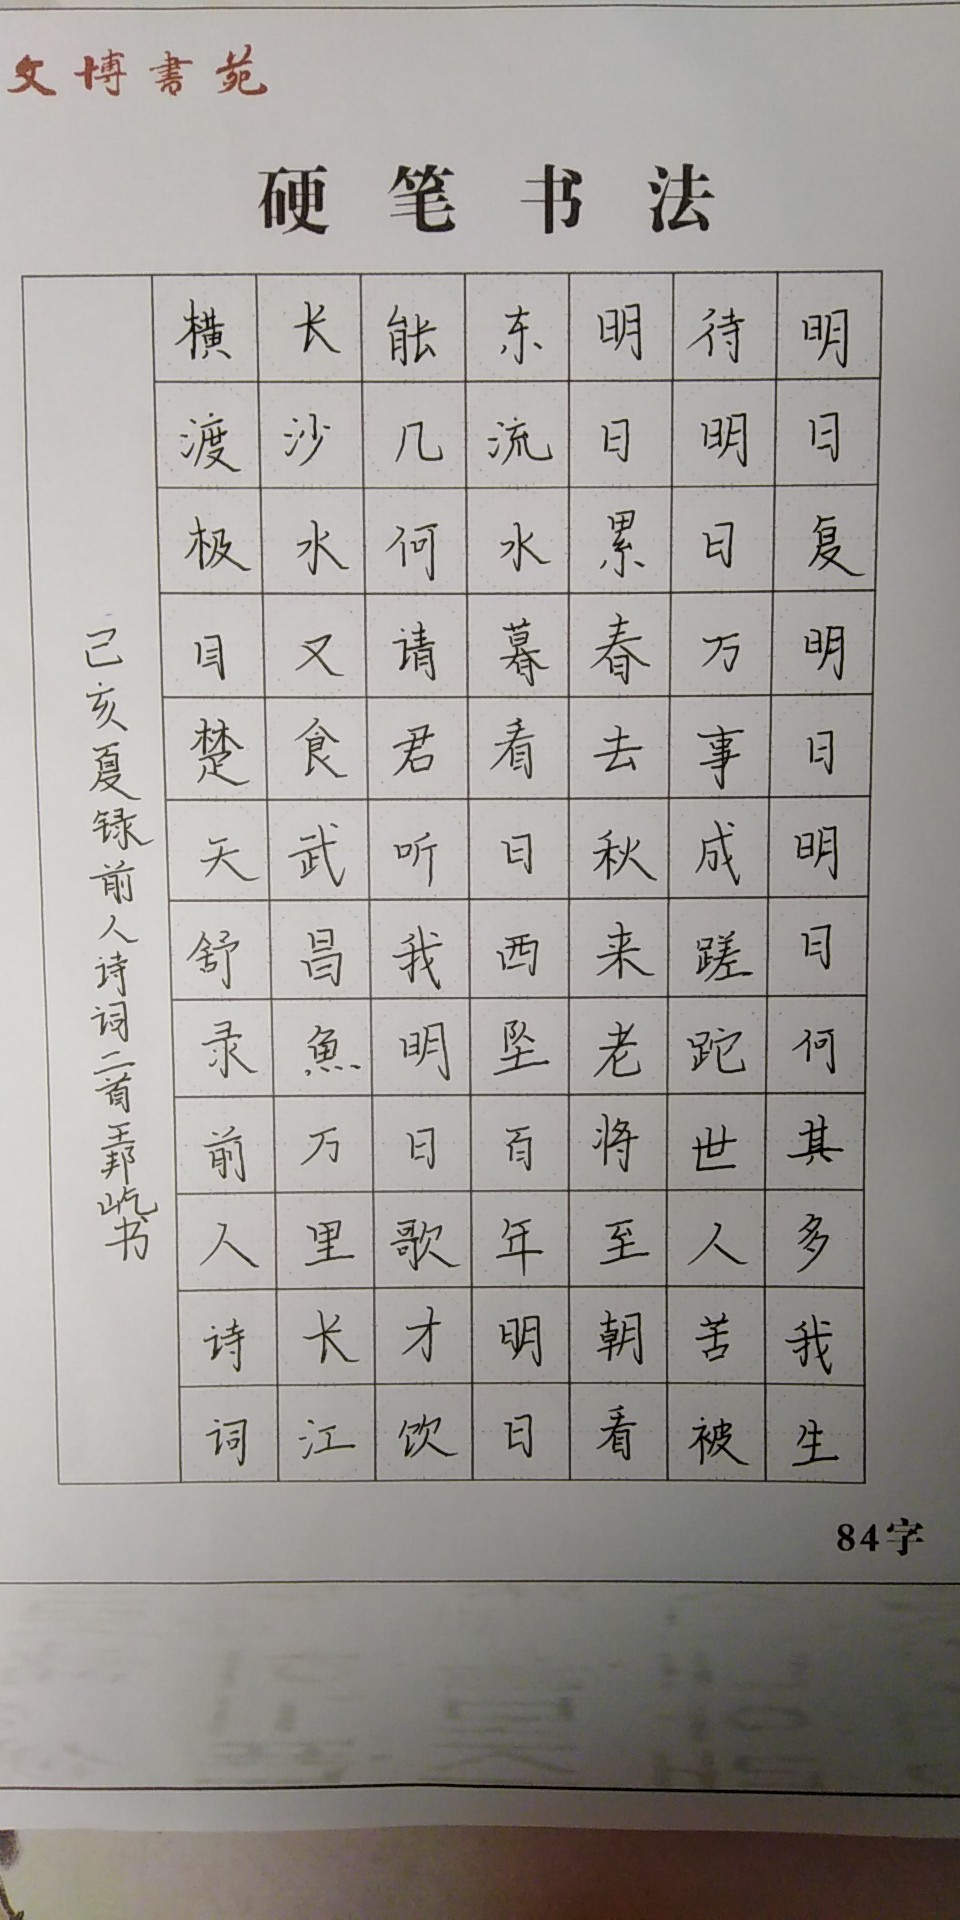 文博書苑
硬笔书法
明日复明日明日何其多我生
待明日万事成蹉跎世人苦被
明日累春去秋来老将至朝看
东流水暮看日西坠百年明日
能几何请君听我明日歌才饮
长沙水又食武昌魚万里长江
横渡极目楚天舒录前人诗词
己亥夏録前人诗词二首王邦屹书
84字